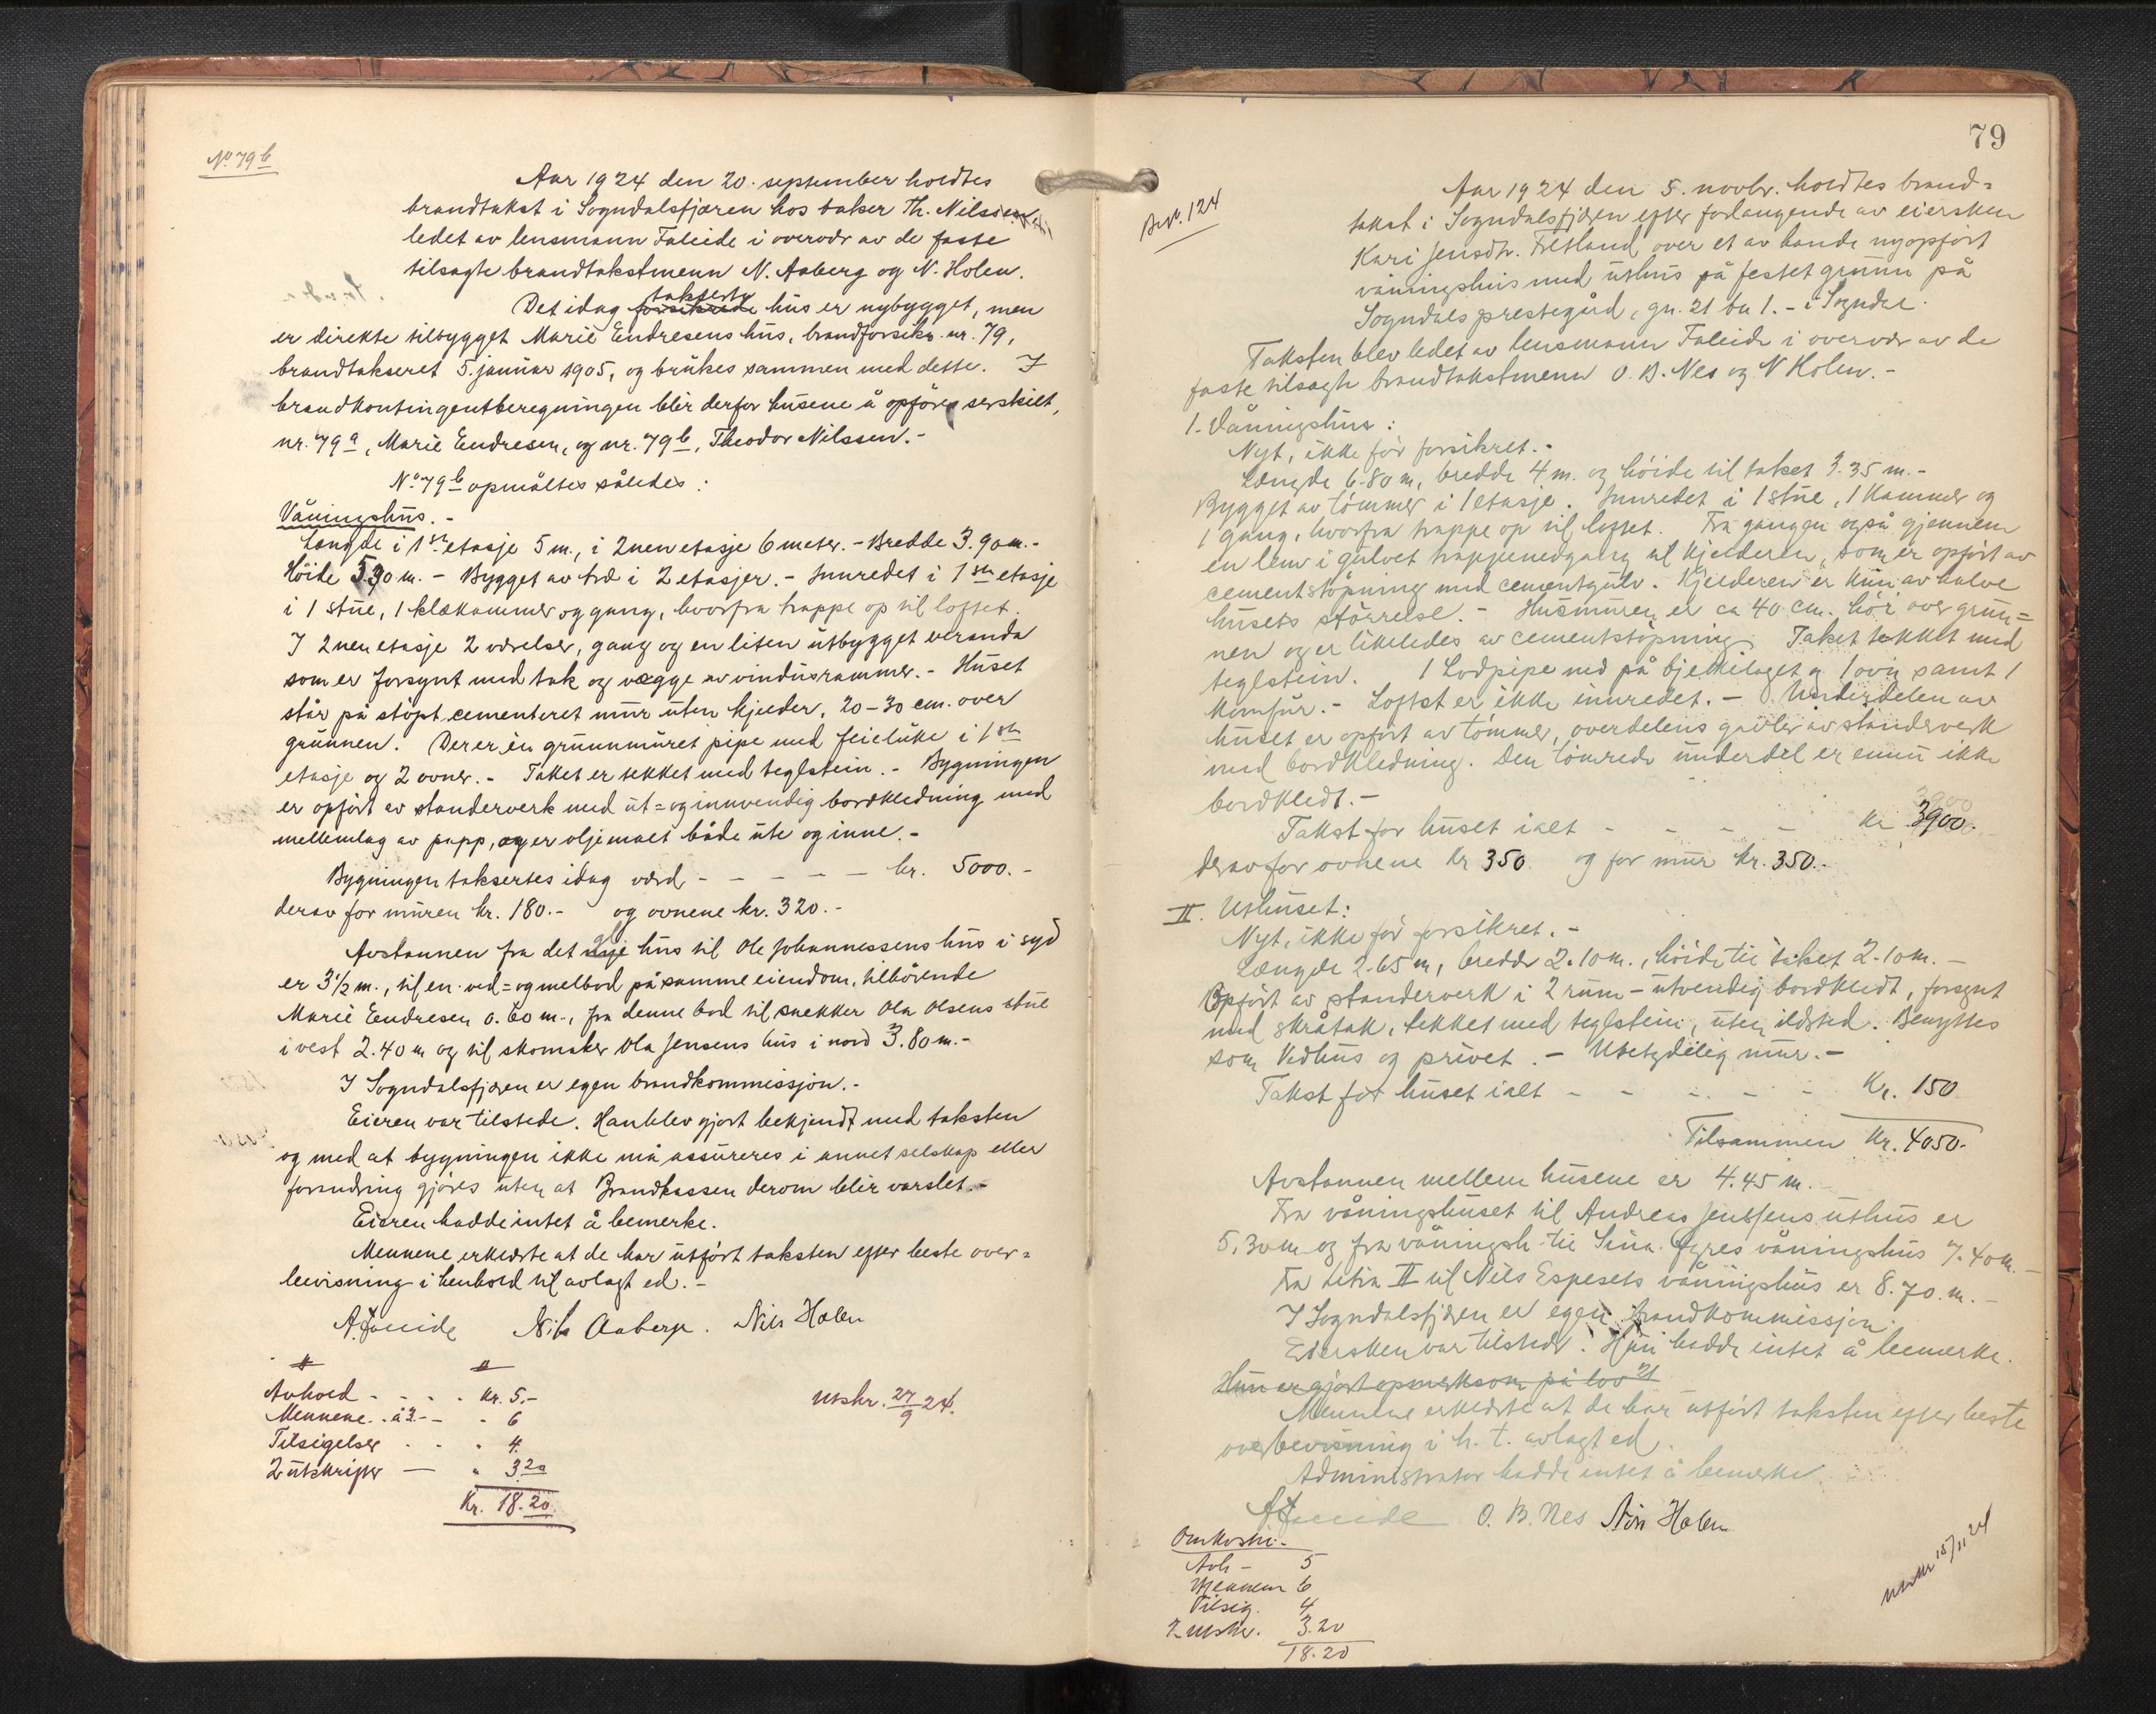 No. 79 b
Aar 1924 den 20. september holdtes
brandtakst i Sogndalsfjæren hos baker Th. Nilssen,
ledet av lensmann Faleide i overvær av de faste
tilsagte brandtakstmenn N. Aaberg og N. Holen.
Det idag forsikrede takserte hus er nybygget, men
er direkte tilbygget Marie Endresens hus, brandforsikr. nr. 79,
brandtakseret 5. januar 1905, og brukes sammen med dette. I
brandkontingentberegningen blir derfor husene å opføres serskilt,
nr. 79 a, Marie Endresen, og nr. 79 b, Theodor Nilssen.-
No 79 b opmåltes således:
Våningshus.-
Længde i 1ste etasje 5 m., i 2nen etasje 6 meter.- Bredde 3.90 m.-
Höide 5.90 m.- Bygget av træ i 2 etasjer.- Innredet i 1ste etasje
i 1 stue, 1 klækammer og gang, hvorfra trappe op til loftet.
I 2nen etasje 2 værelser, gang og en liten utbygget veranda
som er forsynt med tak og vægge av vindusrammer.- Huset
står på støpt cementeret mur uten kjelder, 20-30 cm. over
grunnen. Der er én grunnmuret pipe med feieluke i 1ste
etasje og 2 ovner.- Taket er tekket med teglstein.- Bygningen
er opført av standerverk med ut= og innvendig bordkledning med
mellemlag av papp, og er oljemalt både ute og inne.-
Bygningen takseres idag værd - - - - - kr. 5000.-
derav for muren kr. 180.- og ovnene kr. 320.-
Avstannen fra det nye hus til Ole Johannessens hus i syd
er 3½ m., til en ved= og melbod på samme eiendom, tilhörende
Marie Endresen 0.60 m., fra denne bod til snekker Ola Olsens stue
i vest 2.40 m og til skomaker Ola Jensens hus i nord 3.80 m.-
I Sogndalsfjæren er egen brandkommissjon.-
Eieren var tilstede. Han blev gjort bekjendt med taksten
og med at bygningen ikke må assureres i annet selskap eller
forandring gjøres uten at Brandkassen derom blir varslet.-
Eieren hadde intet å bemerke.
Mennene erklærte at de har utført taksten efter beste over=
bevisning i henhold til avlagt ed.-
A. Faleide Nils Aaberge. Nils Holen
Avhold - - - - Kr. 5.-
Mennene - à 3.- - " 6
Tilsigelser - - " 4.
2 utskrifter — " 3.20
Kr. 18.20
Utskr. 27/9 24.
79
Bev. 124
Aar 1924 den 5. novbr. holdtes brand=
takst i Sogndalsfjæren efter forlangende av eiersken
Kari Jensdtr. Fretland over et av hende nyopført
våningshus med uthus på festet grunn på
Sogndals prestegård, gn. 21 bn 1.- i Sogndal.
Taksten blev ledet av lensmann Faleide i overvær av de
faste tilsagte brandtakstmenn O. B. Nes og N Holen.-
1. Våningshus:
Nyt, ikke før forsikret.-
Længde 6.80 m, bredde 4 m. og höide til taket 3.35 m.-
Bygget av tömmer i 1 etasje. Innredet i 1 stue, 1 Kammer og
1 gang, hvorfra trappe op til loftet. Fra gangen også gjennem
en lem i gulvet trappenedgang til kjelderen, som er opført av
cementstöpning med cementgulv. Kjelderen er kun av halve
husets störrelse.- Husmuren er ca 40 cm. höi over grun=
nen og er likeledes av cementstöpning. Taket tekket med
teglstein. 1 Lodpipe ned på bjelkelaget og 1 ovn samt 1
Komfur.- Loftet er ikke innredet.- Underdelen av
huset er opført av tömmer, overdelens gavler av standerverk
med bordkledning. Den tömrede underdel er ennu ikke
bordkledt.-
Takst for huset ialt - - - - kr 3900.
derav for ovnene kr 350. og for mur kr. 350.-
II. Uthuset:
Nyt, ikke før forsikret.-
Længde 2.65 m, bredde 2.10 m., höide til taket 2.10 m.-
Opført av standerverk i 2 rum - utvendig bordkledt, forsynt
med skråtak, tekket med teglstein, uten ildsted. Benyttes
som Vedhus og privet.- Ubetydelig mur.-
Takst for huset ialt - - - - - Kr. 150
Tilsammen Kr. 4050.-
Avstannen mellem husene er 4.45 m.
Fra våningshuset til Andreas Jenssens uthus er
5.30 m og fra våningsh. til Sina Øyres våningshus 7.40 m.-
Fra litra II til Nils Espesets våningshus er 8.70 m.-
I Sogndalsfjæren er egen brandkommissjon.
Eiersken var tilstede. Hun hadde intet å bemerke.
Hun er gjort opmerksom på lov
Mennene erklærte at de har utført taksten efter beste
overbevisning i h. t. avlagt ed.
Administrator hadde intet å bemerke.
A Faleide O. B. Nes Nils Holen
Omkostn.-
Avh - 5
Mennene 6
Tilsig. 4
2 utskr. 3.20
18.20
utskr 15/11 24